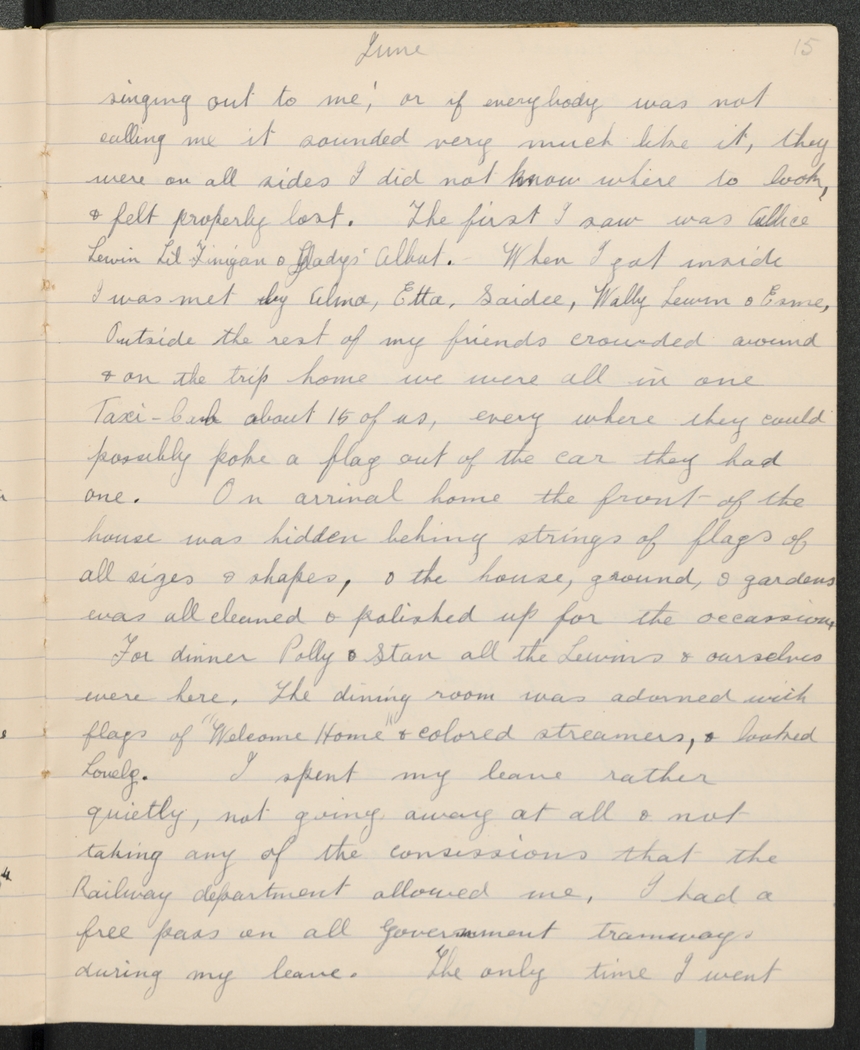 June 15
singing out to me; or if everybody was not
calling me it sounded very much like it, they
were on all sides I did not know where to look,
& felt properly lost. The first I saw was Allice
Lewin Lil Finigan & Gladys Albut. When I got inside
I was met by Alma, Etta, Saidee, Wally Lewin & Esme,
Outside the rest of my friends crowded around
& on the trip home we were all in one
Taxi-Cab about 15 of us, every where they could
possibly poke a flag out of the car they had
one. On arrival home the front of the
house was hidden behing strings of flags of
all sizes & shapes, & the house, ground, & gardens
was all cleaned & polished up for the occassion,
For dinner Polly & Stan all the Lewins & ourselves
were here. The dining room was adorned with
flags of "Welcome Home" & colored streamers, & looked
Lovely. I spent my leave rather
quietly, not going away at all & not
taking any of the consissions that the
Railway department allowed me. I had a
free pass on all Government tramways
during my leave. The only time I went